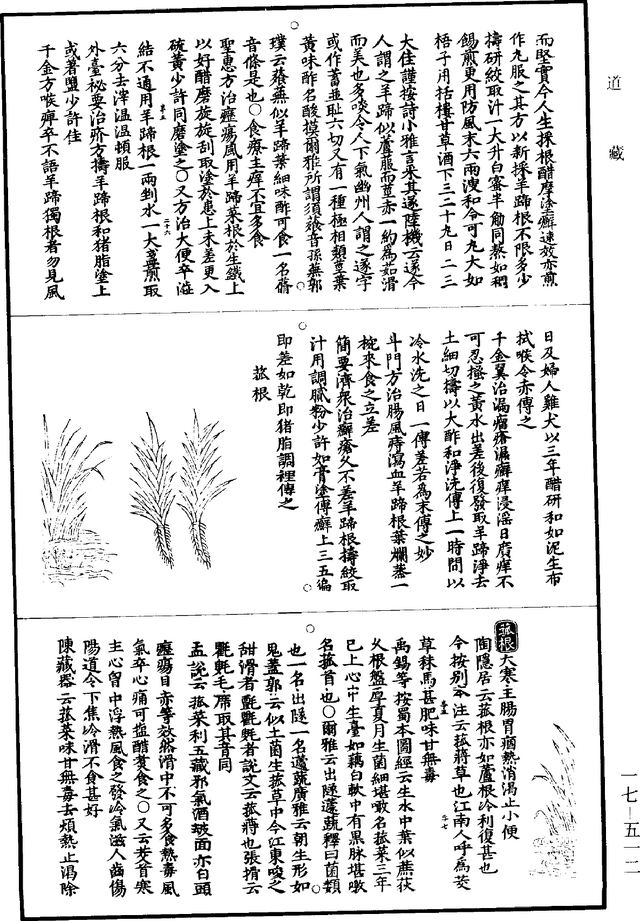 道藏
而堅實今人生採根醋摩塗癬速效亦煎
作丸服之其方以新採羊蹄根不限多少
擣研絞取汁一大升白蜜半觔同熬如稠
餳煎更用防風末六兩溲和令可丸大如
梧子用栝樓甘草酒下三二十丸日二三
大佳謹按詩小雅言采其蓫陸機云蓫今
人謂之羊蹄似蘆服而莖赤一約為茹滑
而美也多啖令人下氣幽州人謂之蓫字
或作蓄並恥六切又有一種極相類莖葉
黃味酢名酸摸爾雅所謂須薞音孫蕪郭
璞云薞蕪似羊蹄葉細味酢可食一名蓨
音條是也○食療主痒不宜多食
聖惠方治癧瘍風用羊蹄菜根於生鐵上
以好醋磨旋旋刮取塗於患上未差更入
硫黃少許同磨塗之○又方治大便卒澁
結不通用羊蹄根一兩剉水一大盞煎取
六分去滓溫溫頓服
外臺秘要治疥方擣羊蹄根和猪脂塗上
或著鹽少許佳
千金方喉痺卒不語羊蹄獨根者勿見風
日及婦人雞犬以三年醋研和如泥生布
拭喉令赤傳之
千金翼治漏瘤瘡濕癬痒浸滛日廣痒不
可忍搔之黃水出差後復發取羊蹄淨去
土細切擣以大酢和淨洗傅上一時間以
冷水洗之日一傅差若為末傅之妙
斗門方治腸風痔瀉血羊蹄根葉爛蒸一
椀來食之立差
簡要濟衆治癬瘡久不差羊蹄根擣絞取
汁用調膩粉少許如膏塗傅癬上三五徧
即差如乾即猪脂調裡傅之
菰根
菰根大寒主腸胃痼熱消渴止小便
陶隱居云菰根亦如蘆根冷利復甚也
今按别本注云菰蔣草也江南人呼為茭
草秣馬甚肥味甘無毒
禹錫等按蜀本圖經云生水中葉似蔗荻
久根盤厚夏月生菌細堪噉名菰菜三年
已上心中生臺如藕白軟中有黑脉堪啖
名菰首也○爾雅云出隧蘧蔬釋曰菌類
也一名出隧一名蘧蔬廣雅云朝生形如
鬼蓋郭云似土菌生菰草中今江東啖之
甜滑者氍氀者說文云菰蔣也張揖云
氍毹毛席取其音同
孟詵云菰菜利五藏邪氣酒皶面赤白頭
癧瘍目赤等效然滑中不可多食熱毒風
氣卒心痛可塩醋煑食之○又云茭首寒
主心胷中浮熱風食之發冷氣滋人齒傷
陽道令下焦冷滑不食甚好
陳藏器云菰菜味甘無毒去煩熱止渴除
一七—五一二